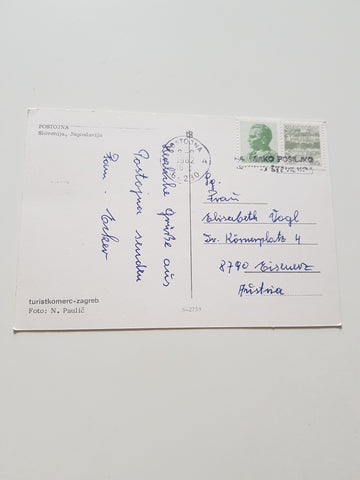 POSTOJNA
Slovenija, Jugoslavija
Herzliche Grüße aus
Postojna senden
Fam.
turistkomerc-zagreb
Foto: N. Paulič
S-2759
POSTOJNA
1982
POŠILJKO
Frau
Elisabeth Vogl
Dr. Körnerplatz 4
8790 Eisenerz
Austria